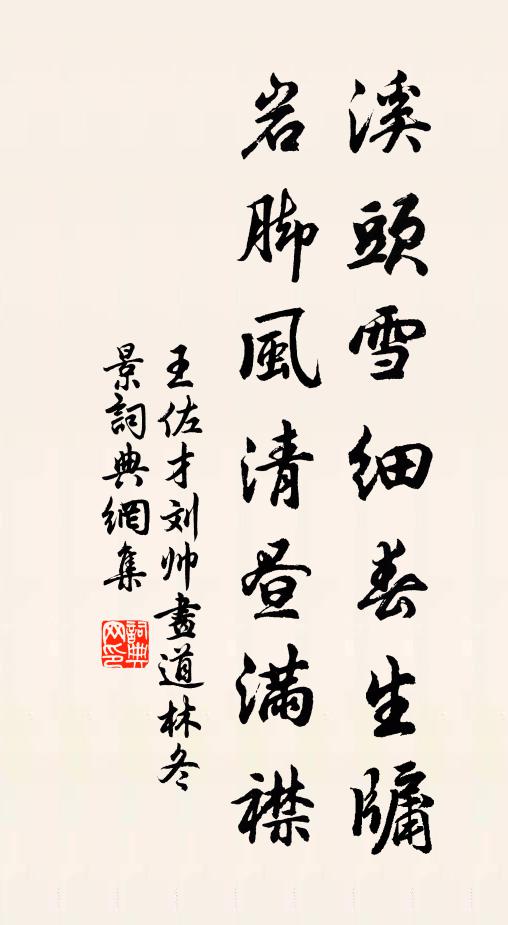 溪頭雪細春生牗
岩脚風清昼满襟
王佐才刘帅畫道林冬
景詞典網集
詞典
网印